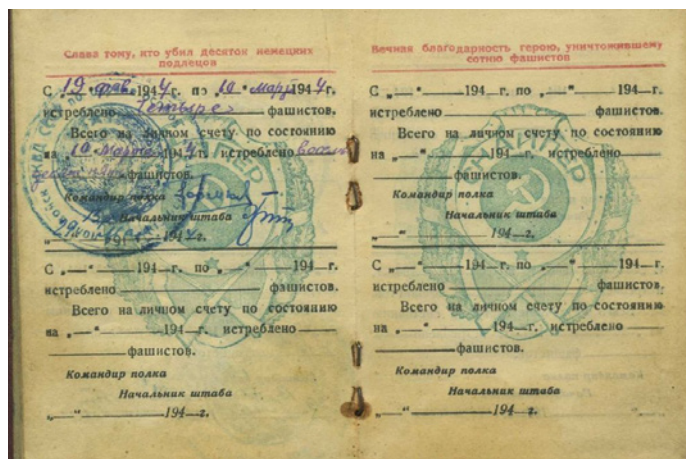 Слава тому, кто убил десяток немецких
подлецов
С „19“ фев. 1944 г. по „10“ март 1944 г.
истреблено Четыре фашистов.
Всего на личном счету по состоянию
на „10“ марта 1944 г. истреблено
фашистов.
Командир полка
Начальник штаба
194 г.
С „ “ 194 г. по „ “ 194 г.
истреблено фашистов.
Всего на личном счету по состоянию
на „ “ 194 г. истреблено
фашистов.
Командир полка
Начальник штаба
„ “ 194 г.
Вечная благодарность герою, уничтожившему
сотню фашистов
С „ “ 194 г. по „ “ 194 г.
истреблено фашистов.
Всего на личном счету по состоянию
на „ “ 194 г. истреблено
фашистов.
Командир полка
Начальник штаба
„ “ 194 г.
С „ “ 194 г. по „ “ 194 г.
истреблено фашистов.
Всего на личном счету по состоянию
на „ “ 194 г. истреблено
фашистов.
Командир полка
Начальник штаба
„ “ 194 г.
СНАЙПЕР